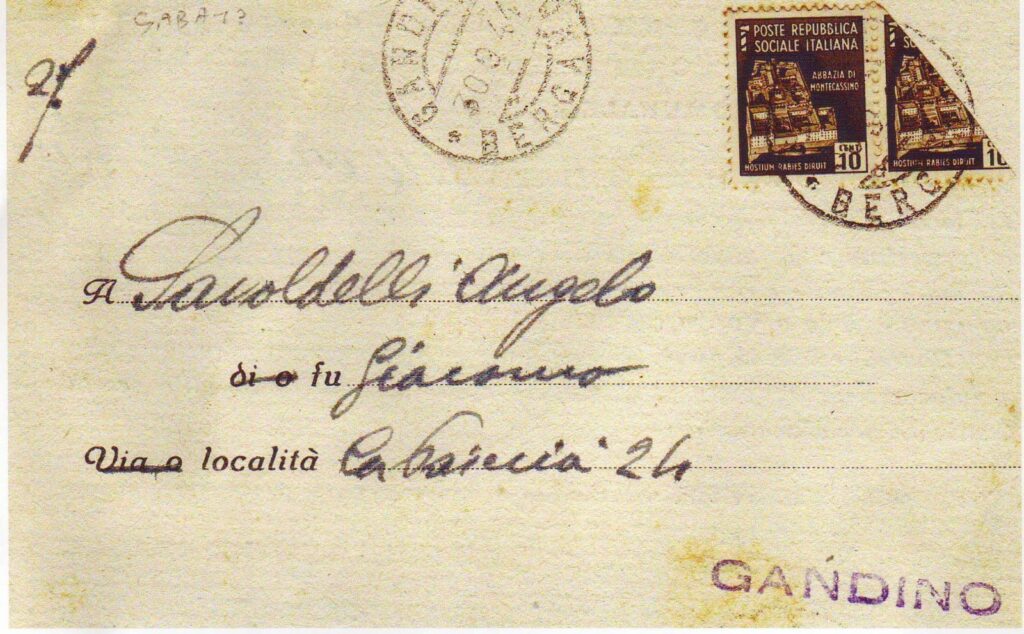 GANDI
30.9.44
* BERGAM
POSTE REPUBBLICA
SOCIALE ITALIANA
ABBAZIA DI
MONTECASSINO
CENT.
10
HOSTIUM RABIES DIRUIT
HOSTIUM RABIES DIRUIT
10
* BERG
A Savoldelli Angelo
di o fu Giacomo
Via o località 24
GANDINO